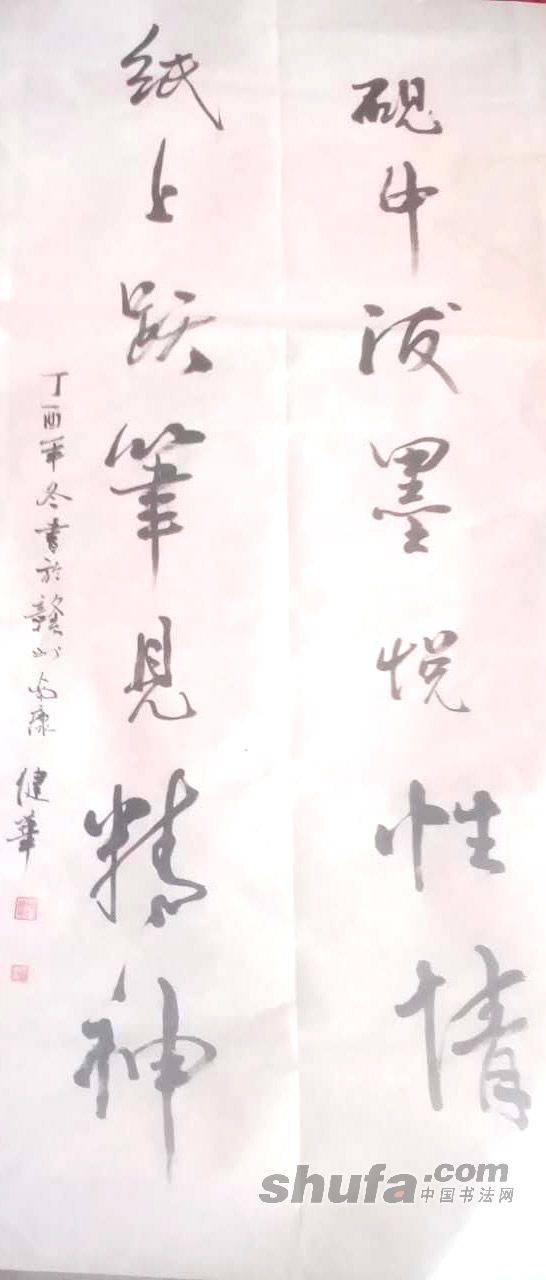 砚中泼墨悦性情
纸上跃筆見精神
丁酉年冬書於赣州南康
健華
shufa.com
中国书法网